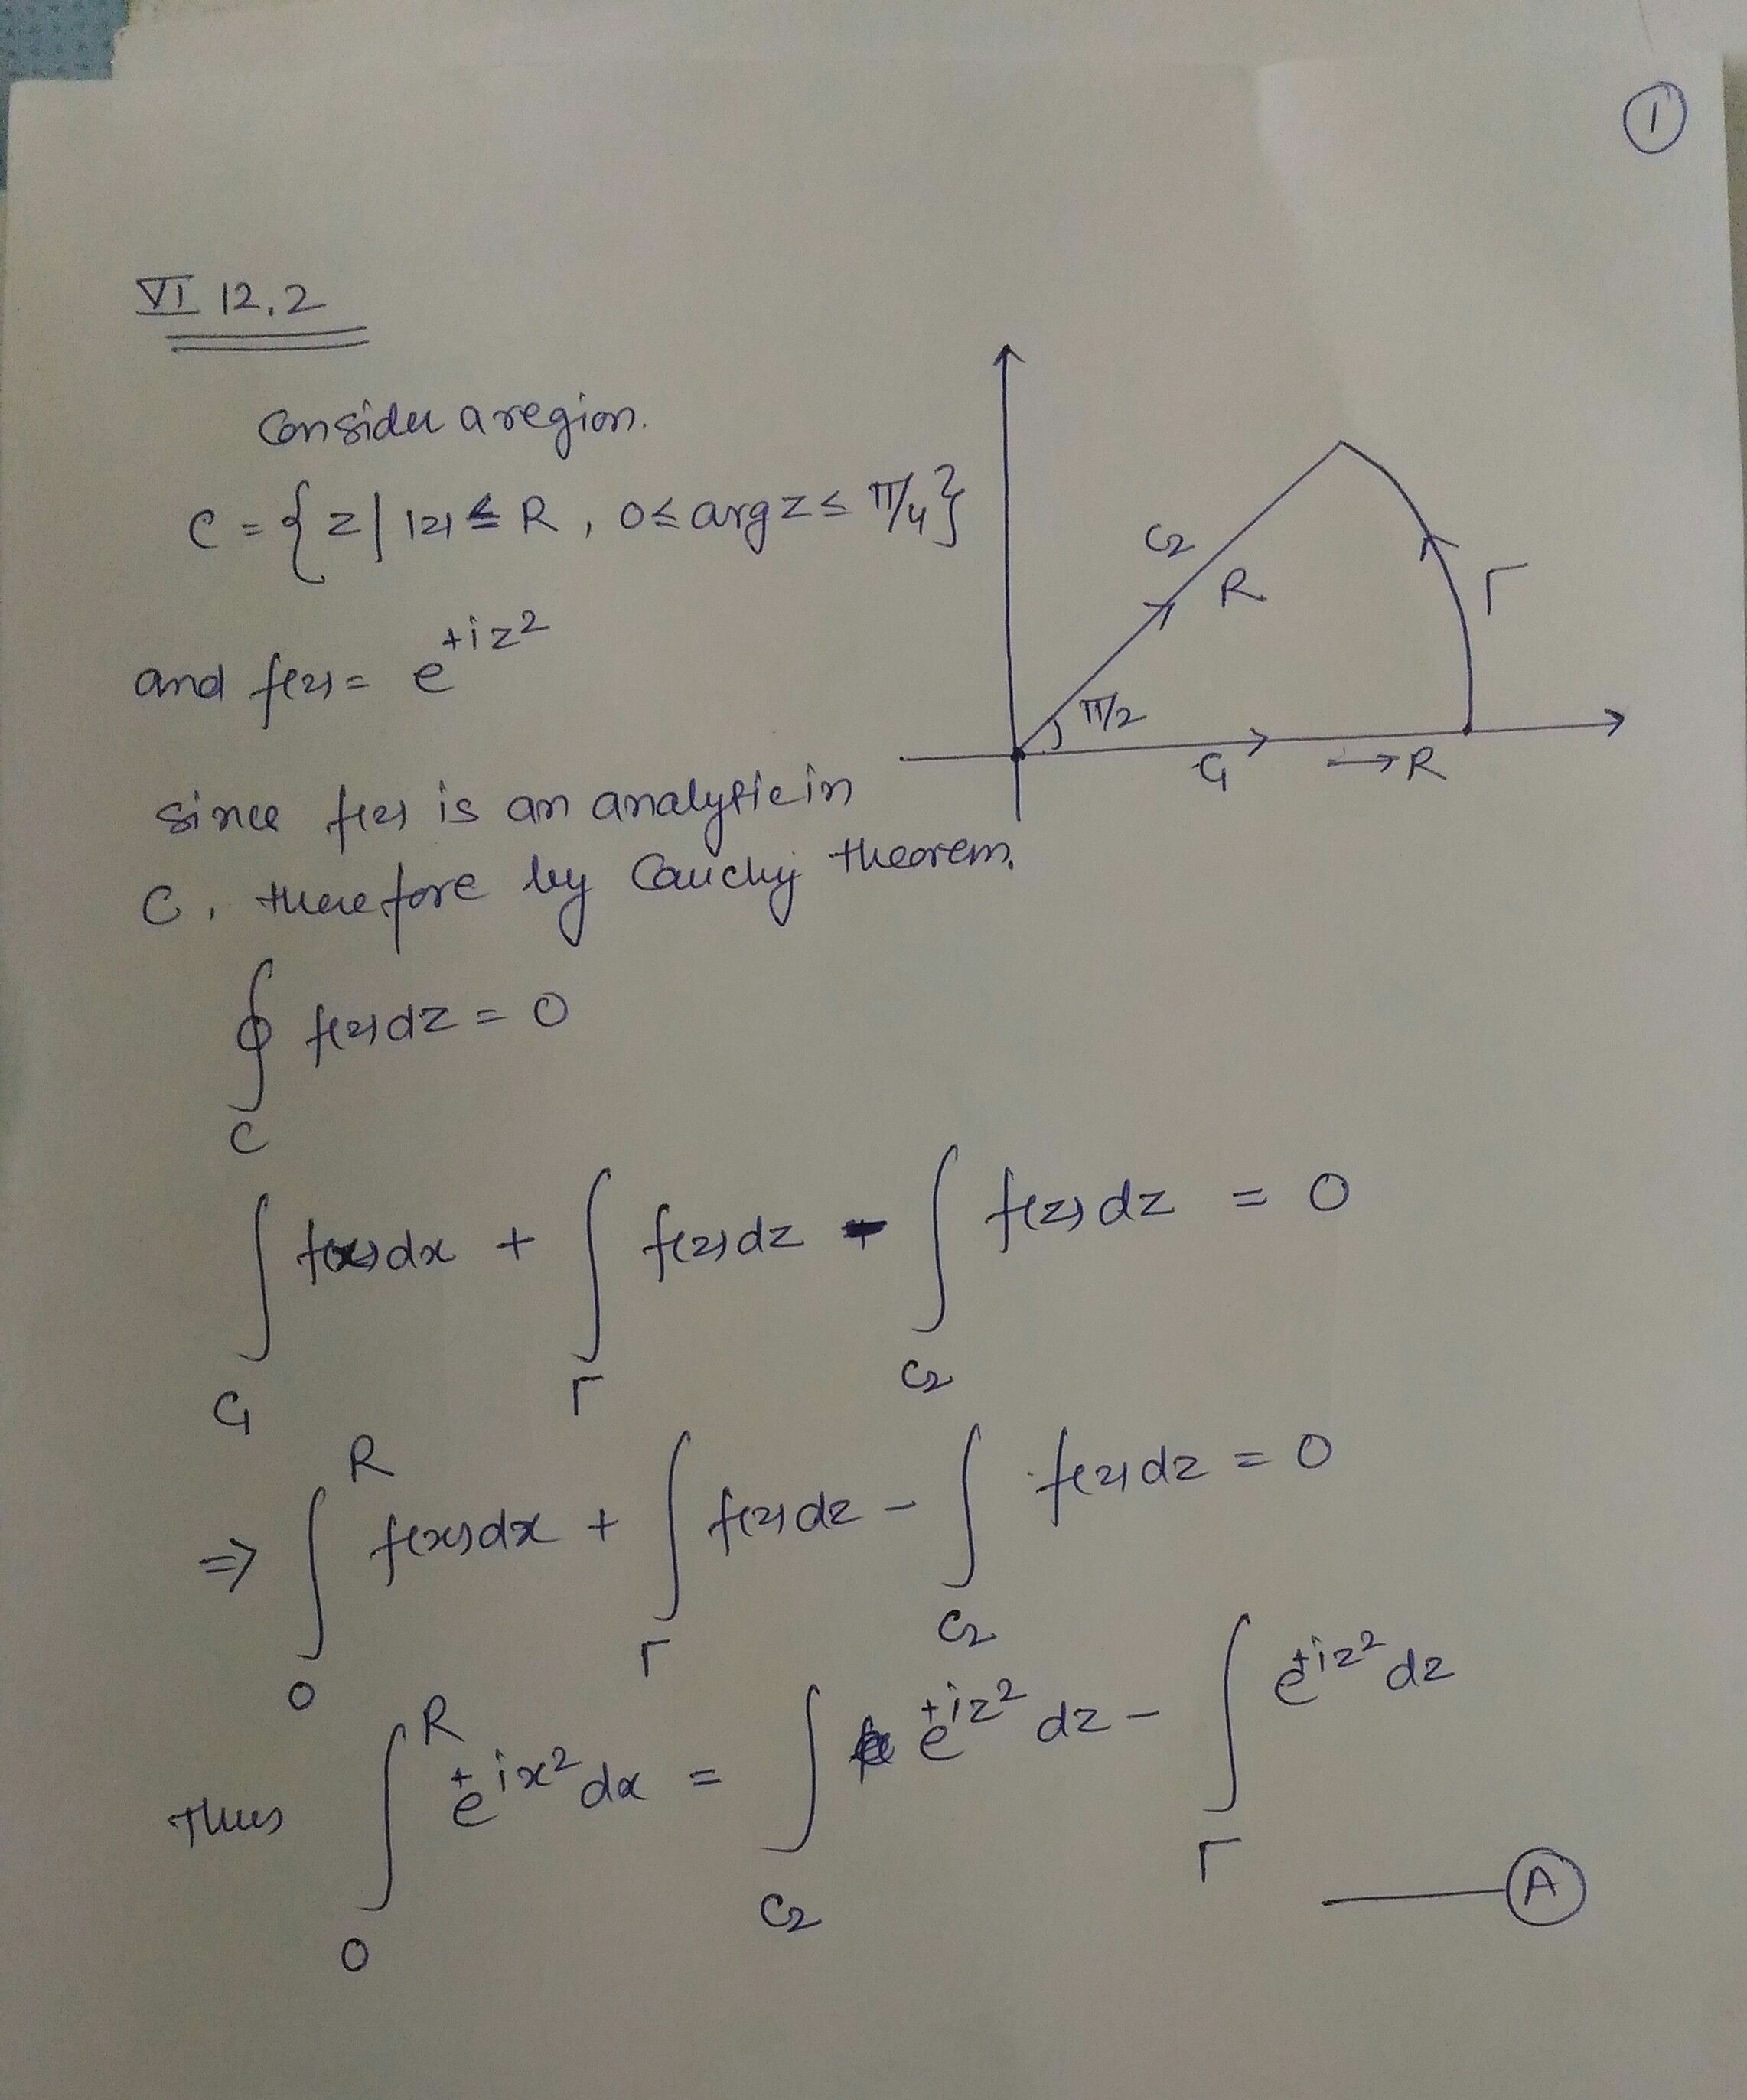 ①
VI 12.2
Consider a region.
C = {z | |z| ≤ R, 0 ≤ arg z ≤ π/4}
and f(z) = e^{+iz^2}
C2
R
Γ
π/2
C1
→ R
since f(z) is an analytic in
C, therefore by Cauchy theorem.
∮_C f(z)dz = 0
∫_{C1} f(x)dx + ∫_Γ f(z)dz - ∫_{C2} f(z)dz = 0
⇒ ∫_0^R f(x)dx + ∫_Γ f(z)dz - ∫_{C2} f(z)dz = 0
Thus ∫_0^R e^{+ix^2} dx = ∫_{C2} e^{+iz^2} dz - ∫_Γ e^{+iz^2} dz
—— Ⓐ